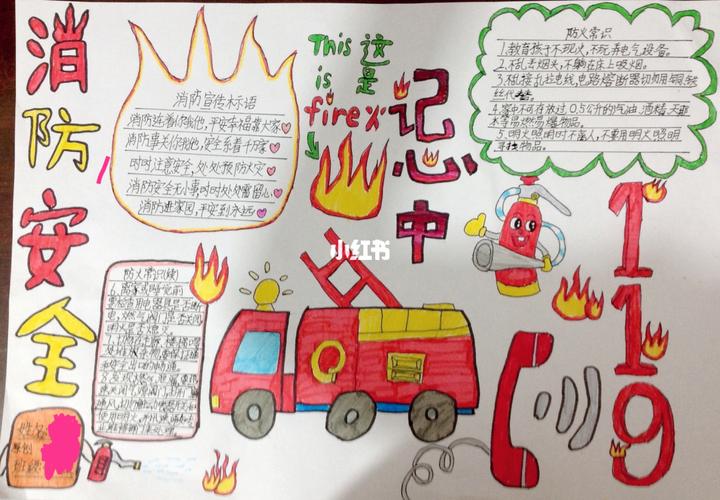 消防安全
消防宣传标语
消防连着你我他,平安幸福靠大家
消防事关你我他,安全系着千万家
时时注意安全,处处预防火灾
消防安全无小事,时时处处需留心
消防进家园,平安到永远
This 这
is 是
fire 火
记心中
防火常识
1.教育孩子不玩火,不玩弄电气设备。
2.不乱丢烟头,不躺在床上吸烟。
3.不乱接乱拉电线,电路熔断器切勿用铜、铁
丝代替。
4.家中不可存放过0.5公升的汽油、酒精、天那
水等易燃易爆物品。
5.明火照明时不离人,不要用明火照明
寻找物品。
119
小红书
防火常识(续)
6.离家或睡觉前
要检查用电器具是否断
电,燃气阀门是否关闭
明火是否熄灭。
姓名
原创
班级